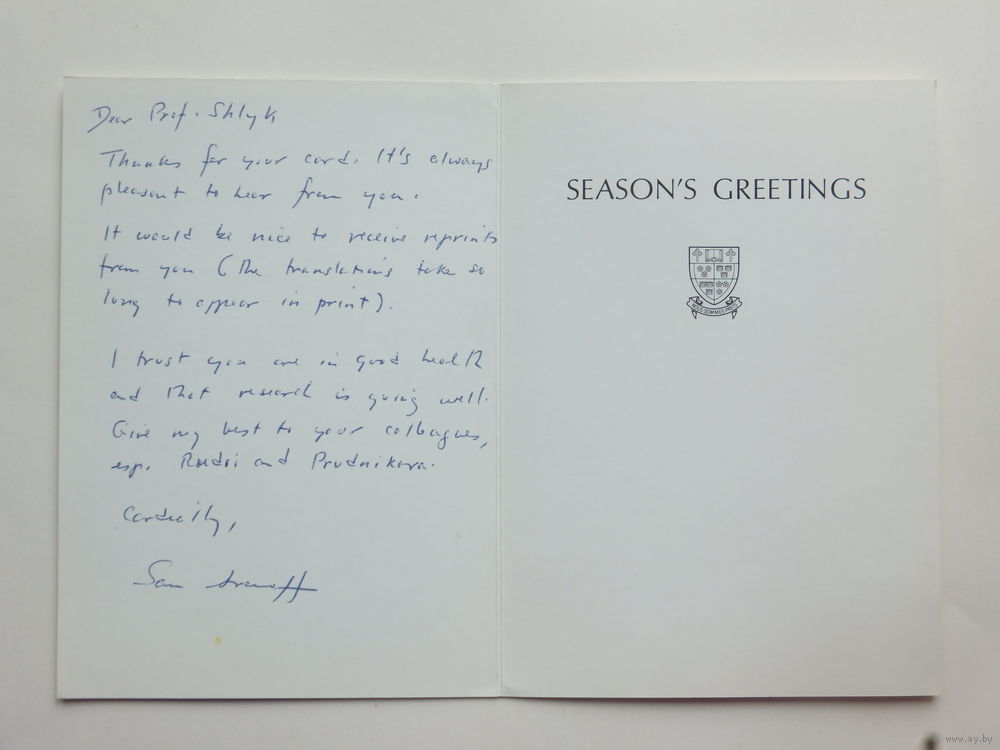 Dear Prof. Shlyk
Thanks for your card. It's always
pleasant to hear from you.
It would be nice to receive reprints
from you (the translations take so
long to appear in print).
I trust you are in good health
and that research is going well.
Give my best to your colleagues,
esp. Rudoi and Prudnikova.
Cordially,
Sam
SEASON'S GREETINGS
NOUS SOMMES PRÊTS
www.ay.by